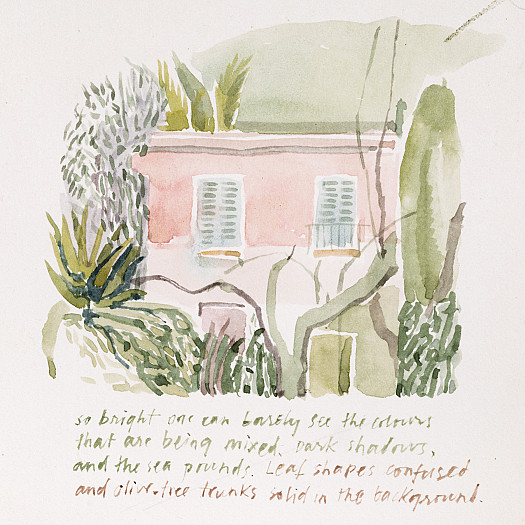 so bright one can barely see the colours
that are being mixed. Dark shadows,
and the sea pounds. Leaf shapes confused
and olive-tree trunks solid in the background.